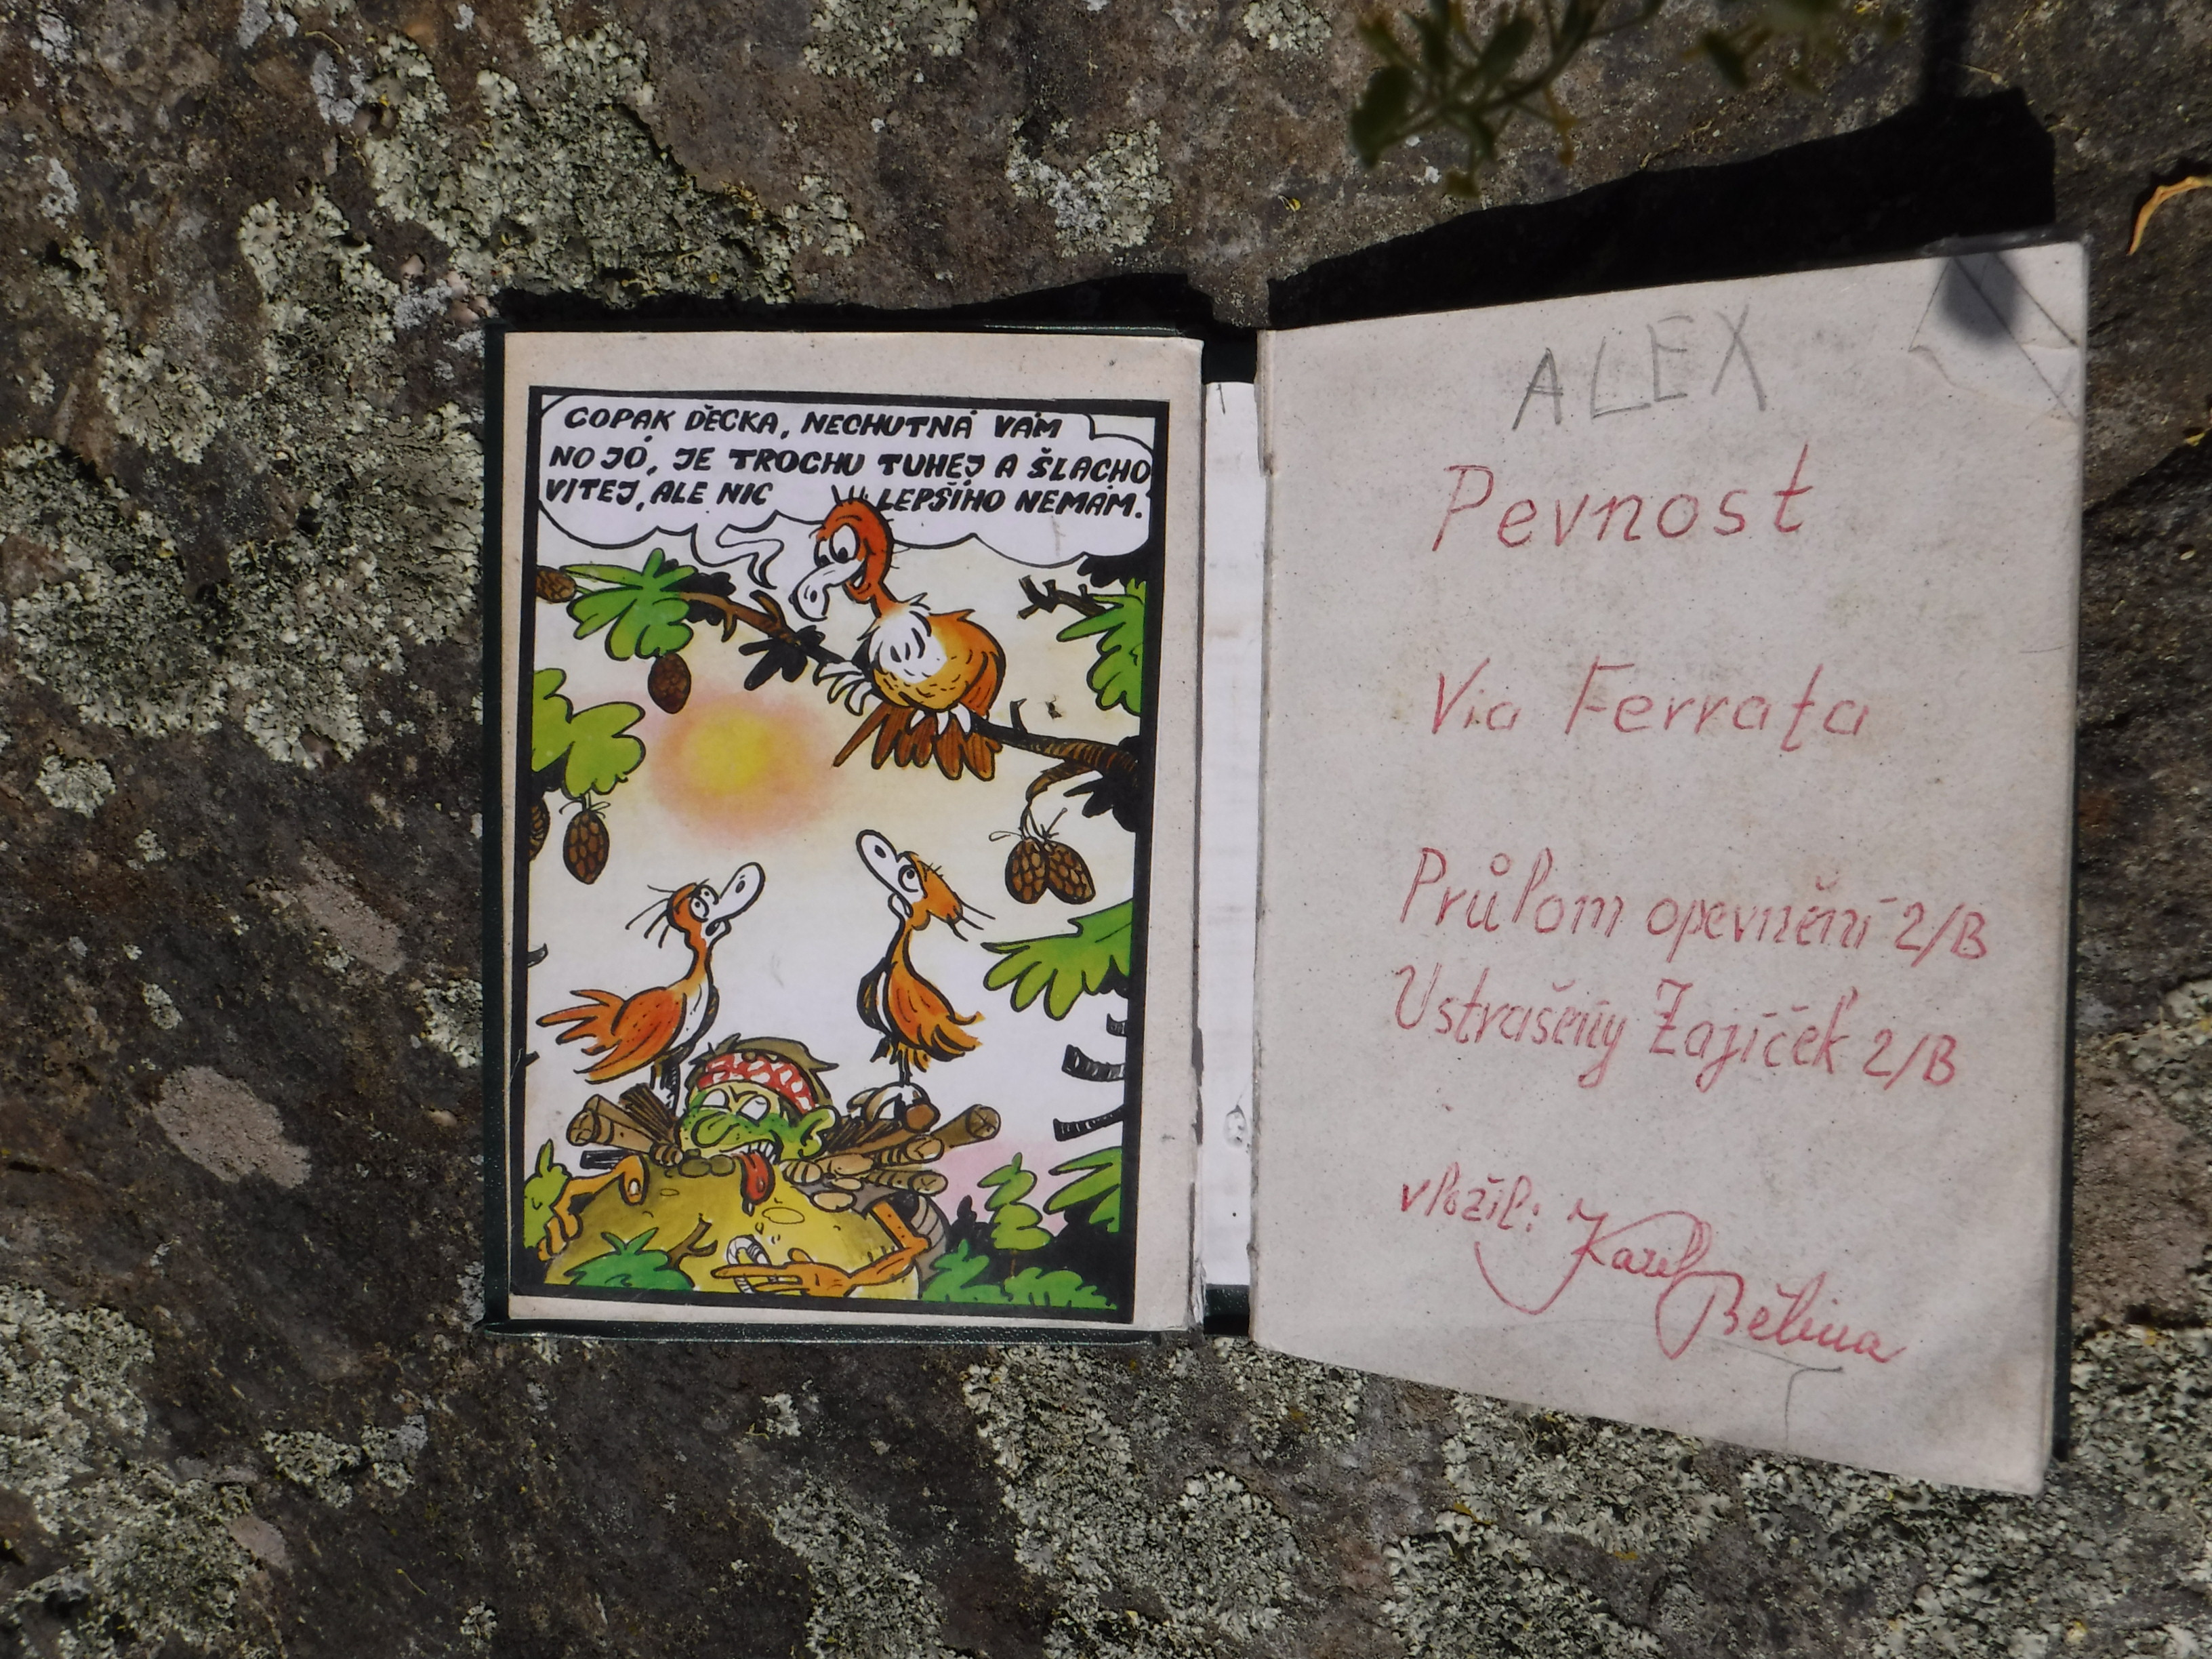 COPAK DĚCKA, NECHUTNÁ VÁM
NO JÓ, JE TROCHU TUHEJ A ŠLACHO
VITEJ, ALE NIC LEPŠÍHO NEMÁM.
ALEX
Pevnost
Via Ferrata
Průlom opevnění 2/B
Ustrašený Zajíček 2/B
vložil: Karel
Bělina